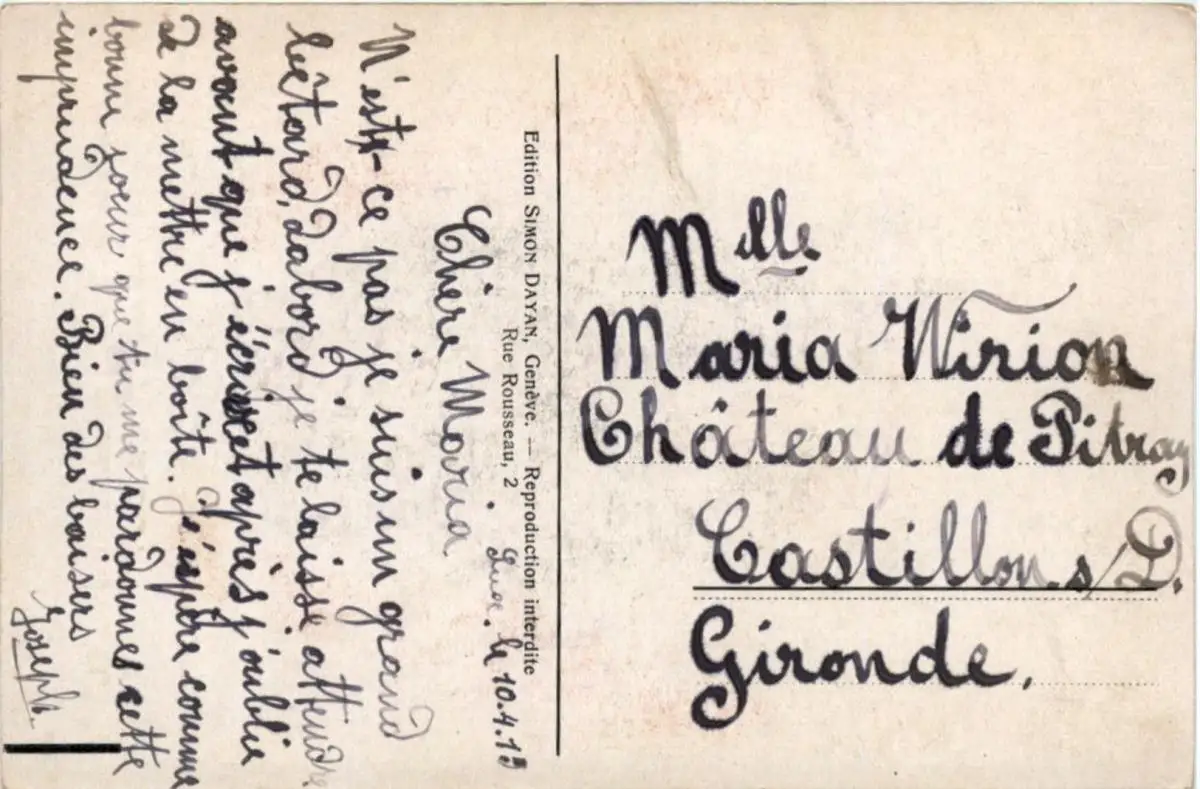 Edition SIMON DAYAN, Genève. — Reproduction interdite
Rue Rousseau, 2
le 10.4.15
Chère Maria
N'est-ce pas je suis un grand
bêtard, dabord je te laisse attendre
avant que j'écris et après j'oublie
de la mettre en boîte. J'éspère comme
bonne soeur que tu me pardonnes cette
imprudence. Bien des baisers
Joseph.
Mlle
Maria Nirion
Château de Pitray
Castillon s/D.
Gironde.